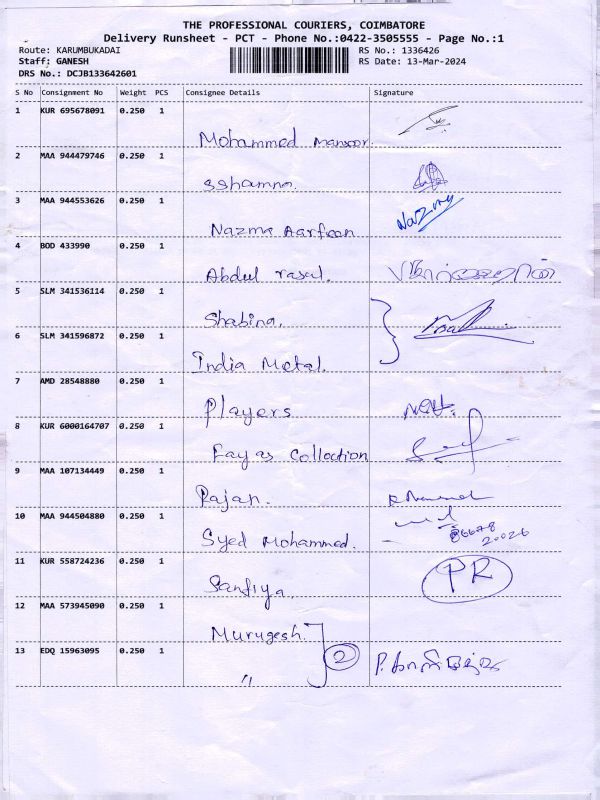 THE PROFESSIONAL COURIERS, COIMBATORE
Delivery Runsheet - PCT - Phone No.:0422-3505555 - Page No.:1
Route: KARUMBUKADAI RS No.: 1336426
Staff: GANESH RS Date: 13-Mar-2024
DRS No.: DCJB133642601
S No Consignment No Weight PCS Consignee Details Signature
1 KUR 695678091 0.250 1
Mohammed Mansoor.
2 MAA 944479746 0.250 1
sshamna.
3 MAA 944553626 0.250 1 Nazmy
Nazma Aarfeen
4 BOD 433990 0.250 1
Abdul rasal.
5 SLM 341536114 0.250 1
Shabina.
6 SLM 341596872 0.250 1
India Metal.
7 AMD 28548880 0.250 1
Players
8 KUR 6000164707 0.250 1
Fayas Collection
9 MAA 107134449 0.250 1
Rajan.
10 MAA 944504880 0.250 1
Syed Mohammed. 20026
11 KUR 558724236 0.250 1 PR
Sanfiya
12 MAA 573945090 0.250 1
Murugesh.
13 EDQ 15963095 0.250 1 2
"